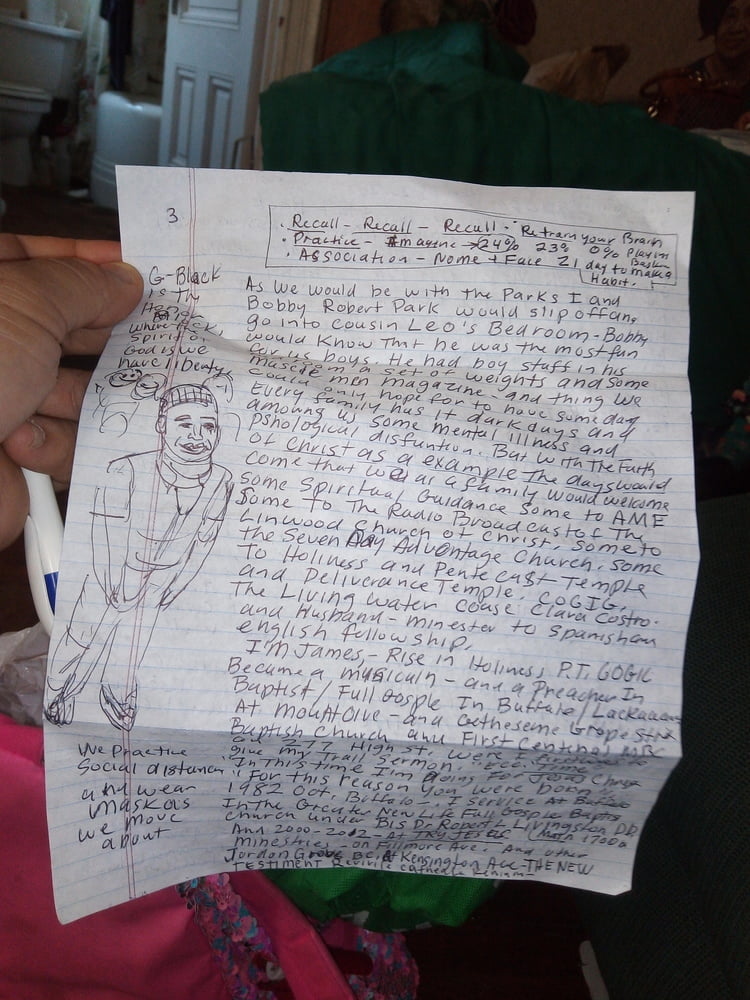 3
. Recall - Recall - Recall - Retrain your Brain
. Practice - Imagine → 24% 23% 0% Playin
. Association - Nome + Face 21 day to making
Habit.
G-Black
is th
white
Spirit of
God is we
have / Deuty
As we would be with the Parks I and
Bobby Robert Park would slip off and
go into cousin Leo's Bedroom - Bobby
would Know That he was the most fun
for us boys. He had boy stuff in his
room a set of weights and some
muscle men magazine and thing we
could only hope for to have some day
Every family has it dark days and
amoung us some mental illness and
pshological disfuntion. But with The Faith
of Christ as a example The days would
come that we as a family would welcome
some Spiritual Guidance Some to AME
Some To The Radio Broadcast of The
Linwood Church of Christ, Some to
the Seven Day Advantage Church, Some
To Holiness and Pentecast Temple
and Deliverance Temple COGIG,
The Living water cause Clara Costro.
and Husband - minester to Spanish an
english fellowship.
I'M James, - Rise in Holiness P.T. COGIC
Became a musiculn - and a Preacher In
Baptist / Full Gosple In Buffalo / Lackawanna
At Mount Olive - and Getheseme Grope St
Baptish Church and First Centenal MBC
on 277 High st. were I
give my Trail Sermon.
"In this time I'm going For
"For this reason You were born"
1982 Oct. Buffalo - I service At Buffalo
In the Greater New Life Full Gosple Baptis
church under Bis Dr Robert L Livingston Db.
And 2000-2012 - At
ministries - on Fillmore Ave. And other
Jordon Grove BC. at Kensington Ave - THE NEW
Testiment Revivle Cathedle
We Practice
Social distance
and wear
Maskas
we move
about